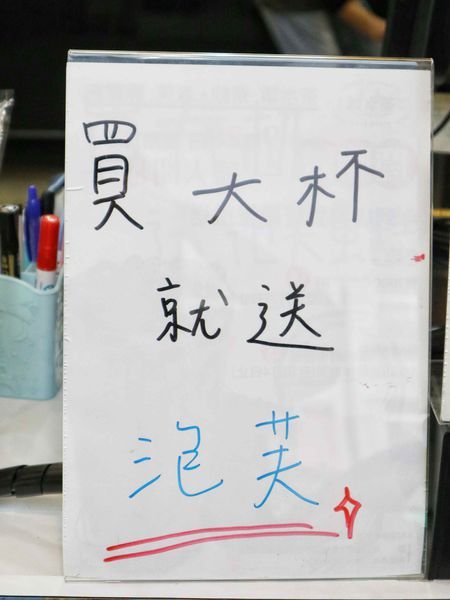 買大杯
就送
泡芙